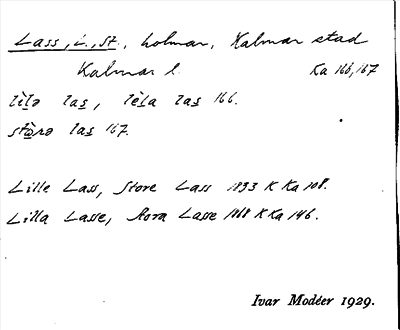 Lass, L., St., holmar, Kalmar stad
Kalmar l. Ka 166, 167
lìlə las, lèla las 166.
stòrə las 167.
Lille Lass, Store Lass 1833 K Ka 108.
Lilla Lasse, Stora Lasse 1868 K Ka 146.
Ivar Modéer 1929.